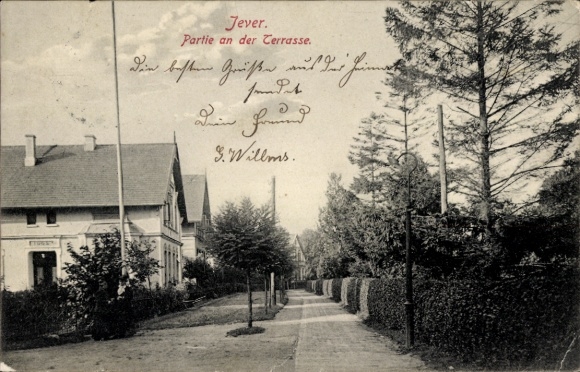 Jever.
Partie an der Terrasse.
Die besten Grüße aus der Heimat
sendet
Dein Freund
G. Willms.